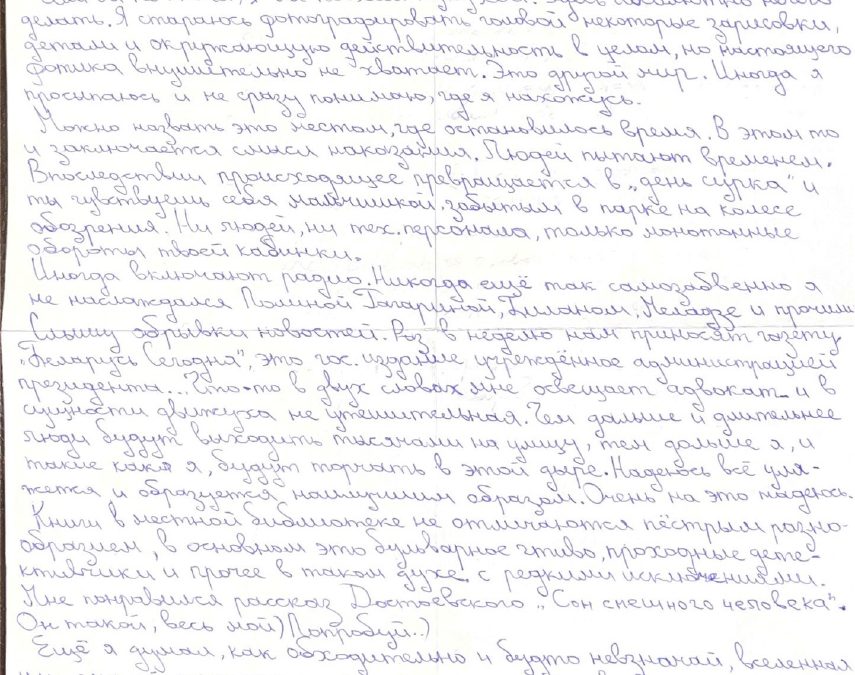 делать. Я стараюсь фотографировать головой некоторые зарисовки,
детали и окружающую действительность в целом, но настоящего
фотика внушительно не хватает. Это другой мир. Иногда я
просыпаюсь и не сразу понимаю, где я нахожусь.
Можно назвать это местом, где остановилось время. В этом то
и заключается смысл наказания. Людей пытают временем.
Впоследствии происходящее превращается в „день сурка" и
ты чувствуешь себя мальчишкой забытым в парке на колесе
обозрения. Ни людей, ни тех. персонала, только монотонные
обороты твоей кабинки.
Иногда включают радио. Никогда ещё так самозабвенно я
не наслаждался Полиной Гагариной, Биланом, Меладзе и прочими
Слышу обрывки новостей. Раз в неделю нам приносят газету
„Беларусь Сегодня", это гос. издание учреждённое администрацией
президента... Что-то в двух словах мне освещает адвокат и в
сущности движуха не утешительная. Чем дальше и длительнее
люди будут выходить тысячами на улицу, тем дальше я, и
такие как я, будут торчать в этой дыре. Надеюсь всё уля-
жется и образуется наилучшим образом. Очень на это надеюсь.
Книги в местной библиотеке не отличаются пёстрым разно-
образием, в основном это бульварное чтиво, проходные дете-
ктивчики и прочее в таком духе с редкими исключениями.
Мне понравился рассказ Достоевского „Сон смешного человека".
Он такой, весь мой) Попробуй..)
Ещё я думал, как обходительно и будто невзначай, вселенная